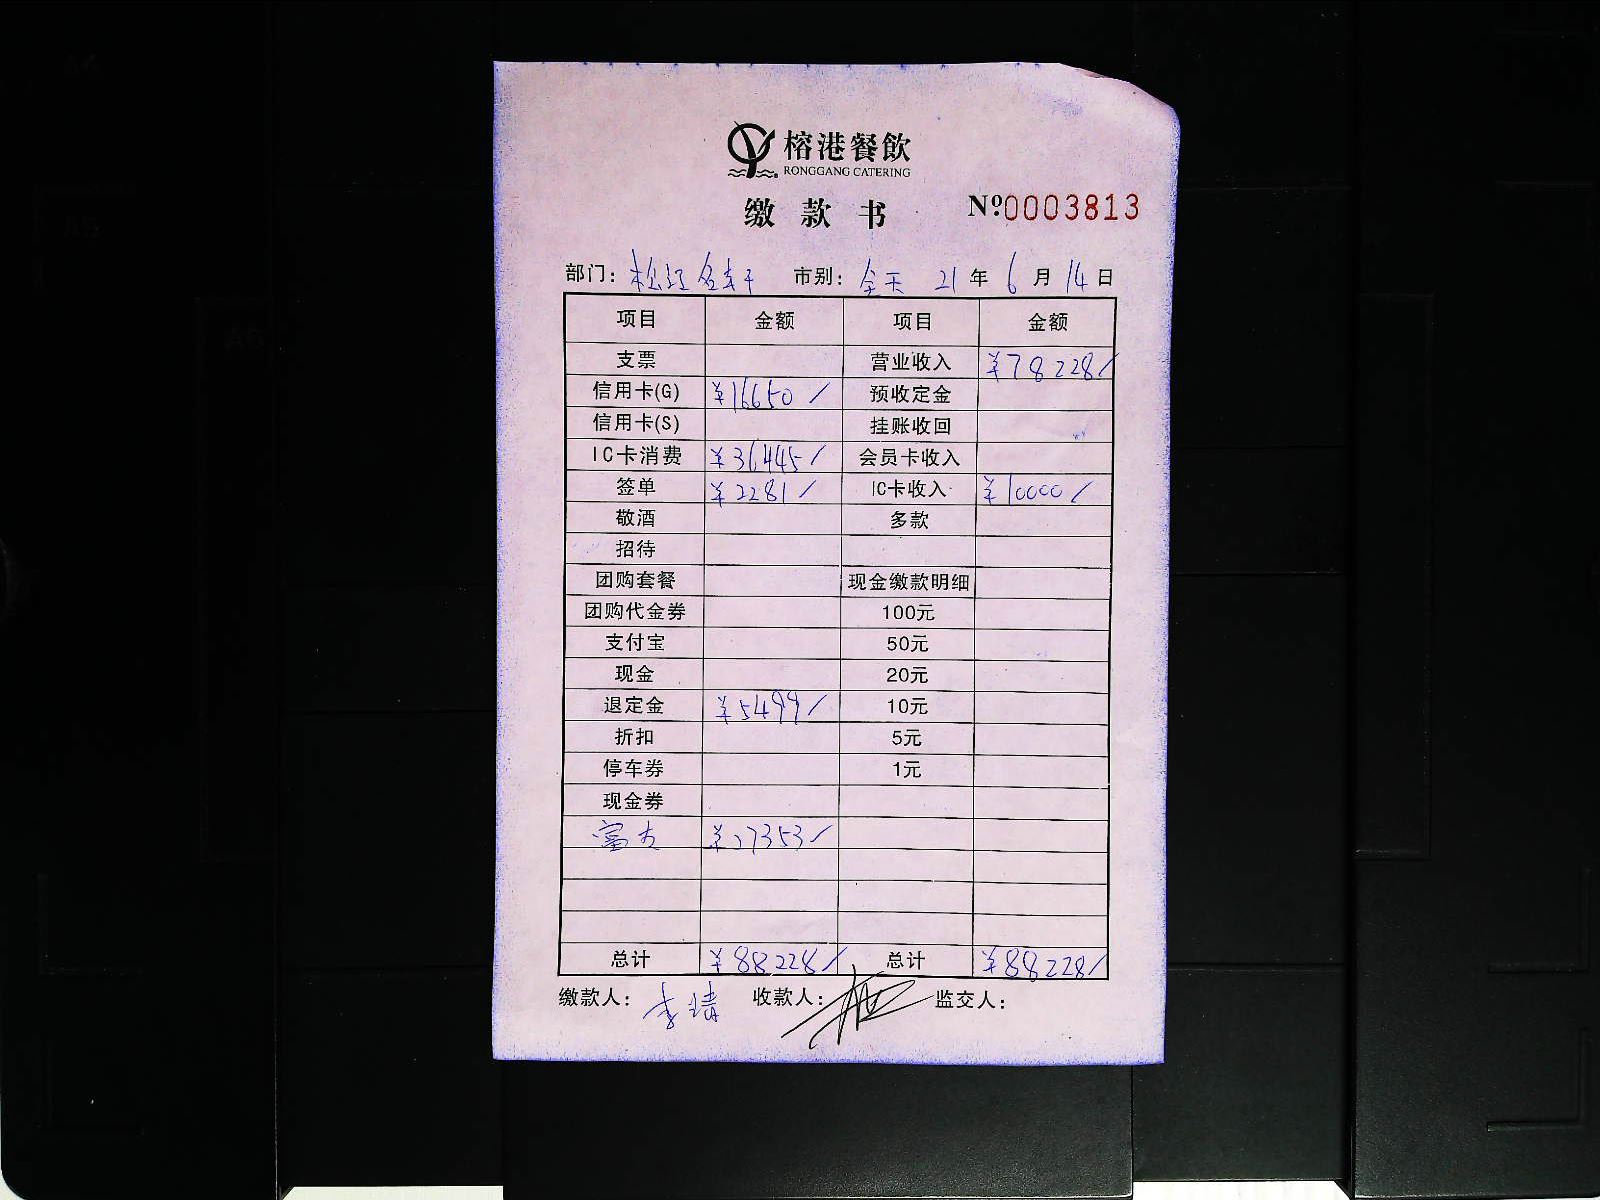 榕港餐飲
RONGGANG CATERING
缴款书 Nº0003813
部门：松江名轩 市别：全天 21年6月14日
项目 金额 项目 金额
支票 营业收入 ¥78228/
信用卡(G) ¥16650/ 预收定金
信用卡(S) 挂账收回
IC卡消费 ¥36445/ 会员卡收入
签单 ¥2281/ IC卡收入 ¥10000/
敬酒 多款
招待
团购套餐 现金缴款明细
团购代金券 100元
支付宝 50元
现金 20元
退定金 ¥5499/ 10元
折扣 5元
停车券 1元
现金券
富友 ¥27353/
总计 ¥88228/ 总计 ¥88228/
缴款人：李婧 收款人： 监交人：